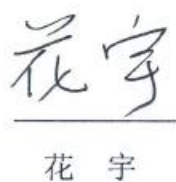 花宇
花 宇